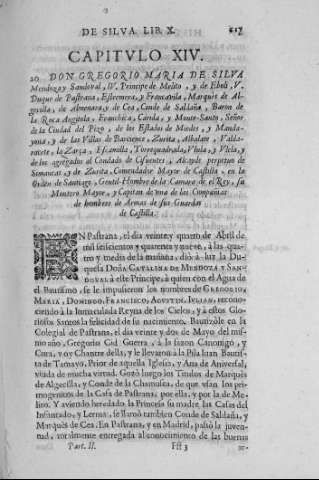 DE SILVA. LIB. X. 217
CAPITVLO XIV.
20 DON GREGORIO MARIA DE SILVA
Mendoza y Sandoval, IV. Principe de Melito, y de Eboli, V.
Duque de Pastrana, Estremera, y Francavila, Marquès de Al-
gecilla, de Almenara, y de Cea, Conde de Saldaña, Baron de
la Roca Angitola, Franchica, Carida, y Monte-Santo, Señor
de la Ciudad del Pizo, de los Estados de Miedes, y Manda-
yona, y de las Villas de Barcience, Zurita, Albalate, Valda-
racete, la Zarza, Escamilla, Torrequadrada, Vlula, y Vlela, y
de los agregados al Condado de Cifuentes, Alcayde perpetuo de
Simancas, y de Zurita, Comendador Mayor de Castilla, en la
Orden de Santiago, Gentil-Hombre de la Camara de el Rey, su
Montero Mayor, y Capitan de vna de las Compañias
de hombres de Armas de sus Guardas
de Castilla.
EN Pastrana, el dia veinte y quatro de Abril de
mil seiscientos y quarenta y nueve, à las qua-
tro y media de la mañana, diò à luz la Du-
quesa Doña CATALINA DE MENDOZA Y SAN-
DOVAL à este Principe, à quien con el Agua de
el Bautismo, se le impusieron los nombres de GREGORIO,
MARIA, DOMINGO, FRANCISCO, AGUSTIN, IULIAN, recono-
ciendo à la Inmaculada Reyna de los Cielos, y à estos Glo-
riosos Santos la felicidad de su nacimiento. Bautizòle en la
Colegial de Pastrana, el dia veinte y dos de Mayo del mis-
mo año, Gregorio Cid Guerra, à la sazon Canonigo, y
Cura, y oy Chantre della, y le llevaron à la Pila Iuan Bautis-
ta de Tamayo, Prior de aquella Iglesia, y Ana de Aniversal,
viuda de mucha virtud. Gozò luego los Titulos de Marquès
de Algecilla, y Conde de la Chamusca, de que vsan los pri-
mogenitos de la Casa de Pastrana, por ella, y por la de Me-
lito. Y aviendo heredado la Princesa su madre las Casas del
Infantado, y Lerma, se llamò tambien Conde de Saldaña, y
Marquès de Cea. En Pastrana, y en Madrid, passò la juven-
tud, totalmente entregada al conocimiento de las buenas
Part. II. Eft 3